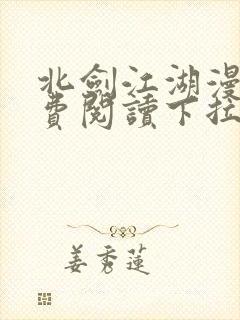 北劍江湖漫
費閱讀下拉
姜秀蓮